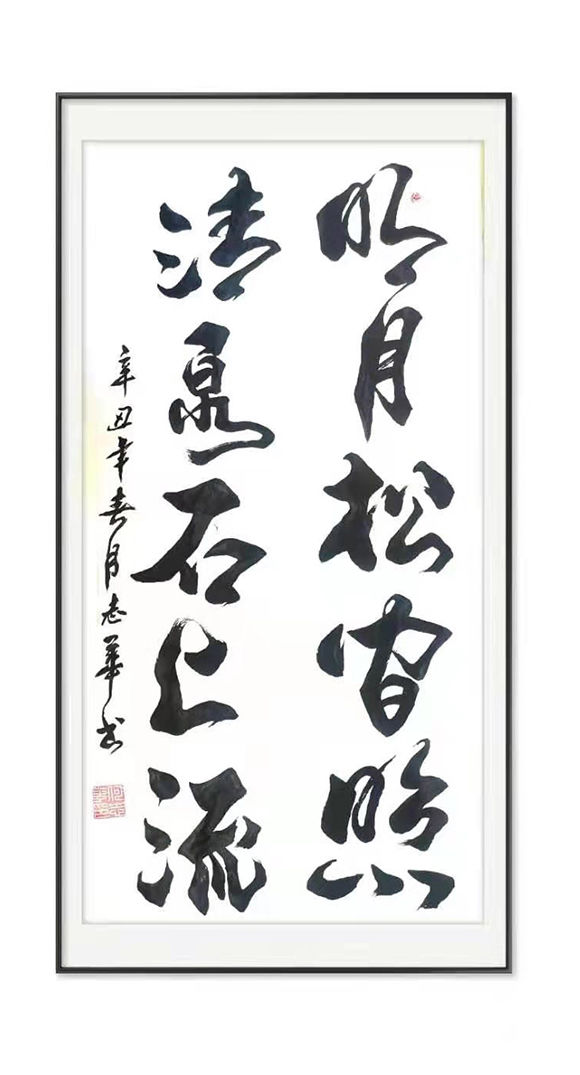 明月松间照
清泉石上流
辛丑年春月志华书